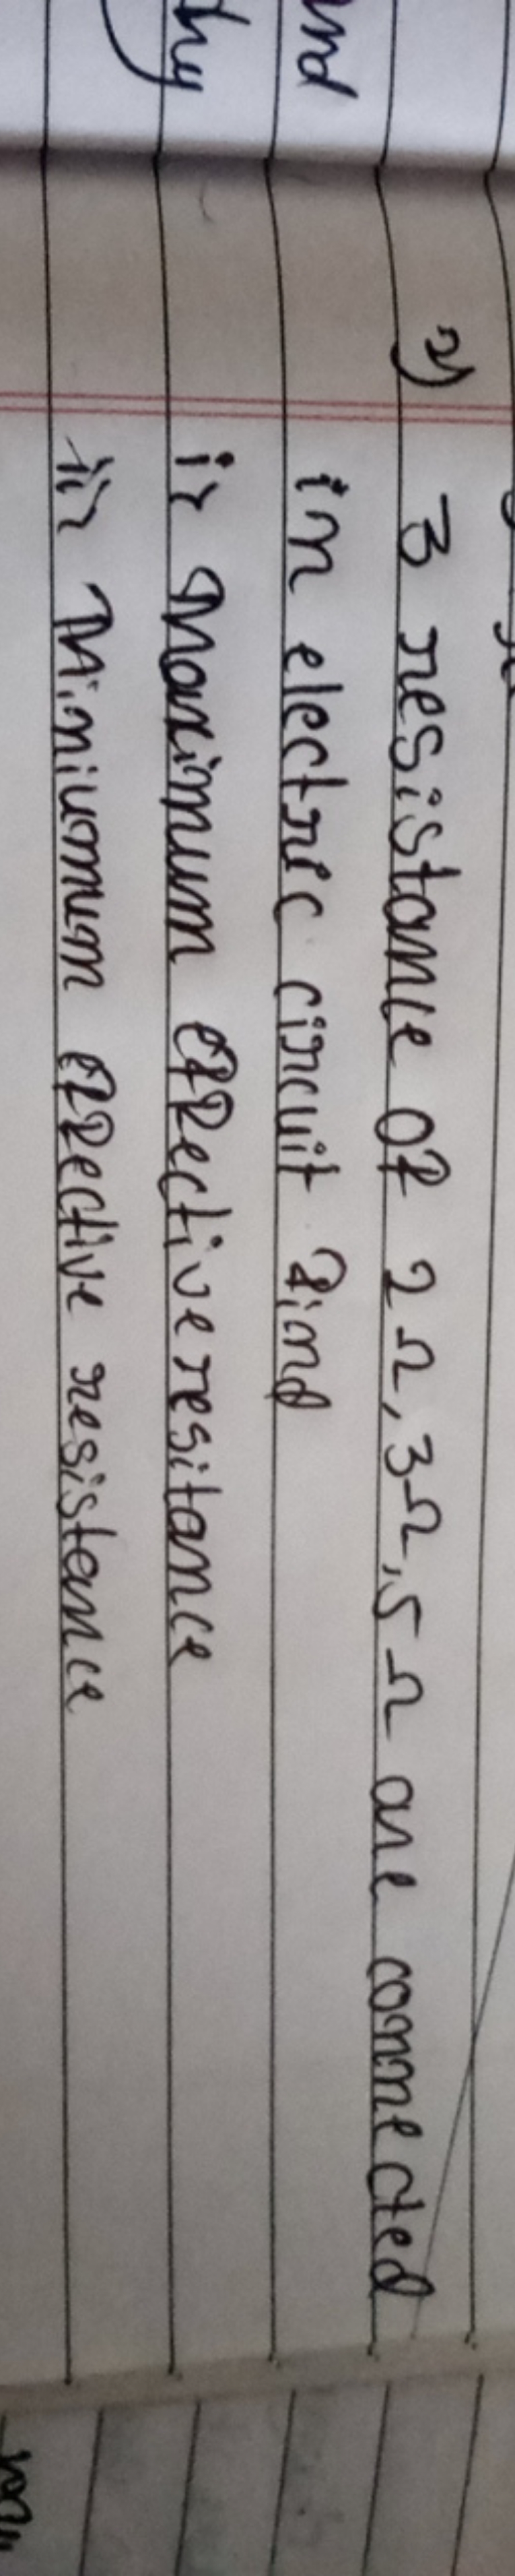 and
thy
2) 3 resistance of 2Ω, 3Ω, 5Ω are connected
in electric circuit find
i> Maximum effective resitance
ii> Miniumum effective resistance